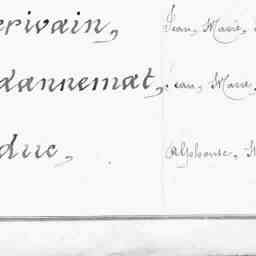 erivain, Jean, Marie,
dannemat, Jean, Marie,
duc, Alphonse,